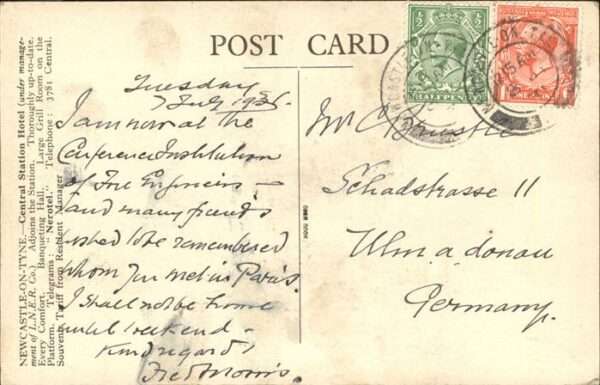 NEWCASTLE-ON-TYNE.—Central Station Hotel (under manage-
ment of L.N.E.R. Co.) Adjoins the Station. Thoroughly up-to-date.
Every Comfort. Banqueting Hall. Large Grill Room on the
Platform. Telegrams: "Nerotel." Telephone: 3781 Central.
Souvenir Tariff from Resident Manager
POST CARD
Tuesday
7 July
I am now at the
Conference Institution
of Fire Engineers —
and many friends
wished to be remembered
whom you met in Paris.
I shall not be home
until weekend —
Kind regards
Fred Morris.
Mr C
Schadstrasse 11
Ulm a donau
Germany.